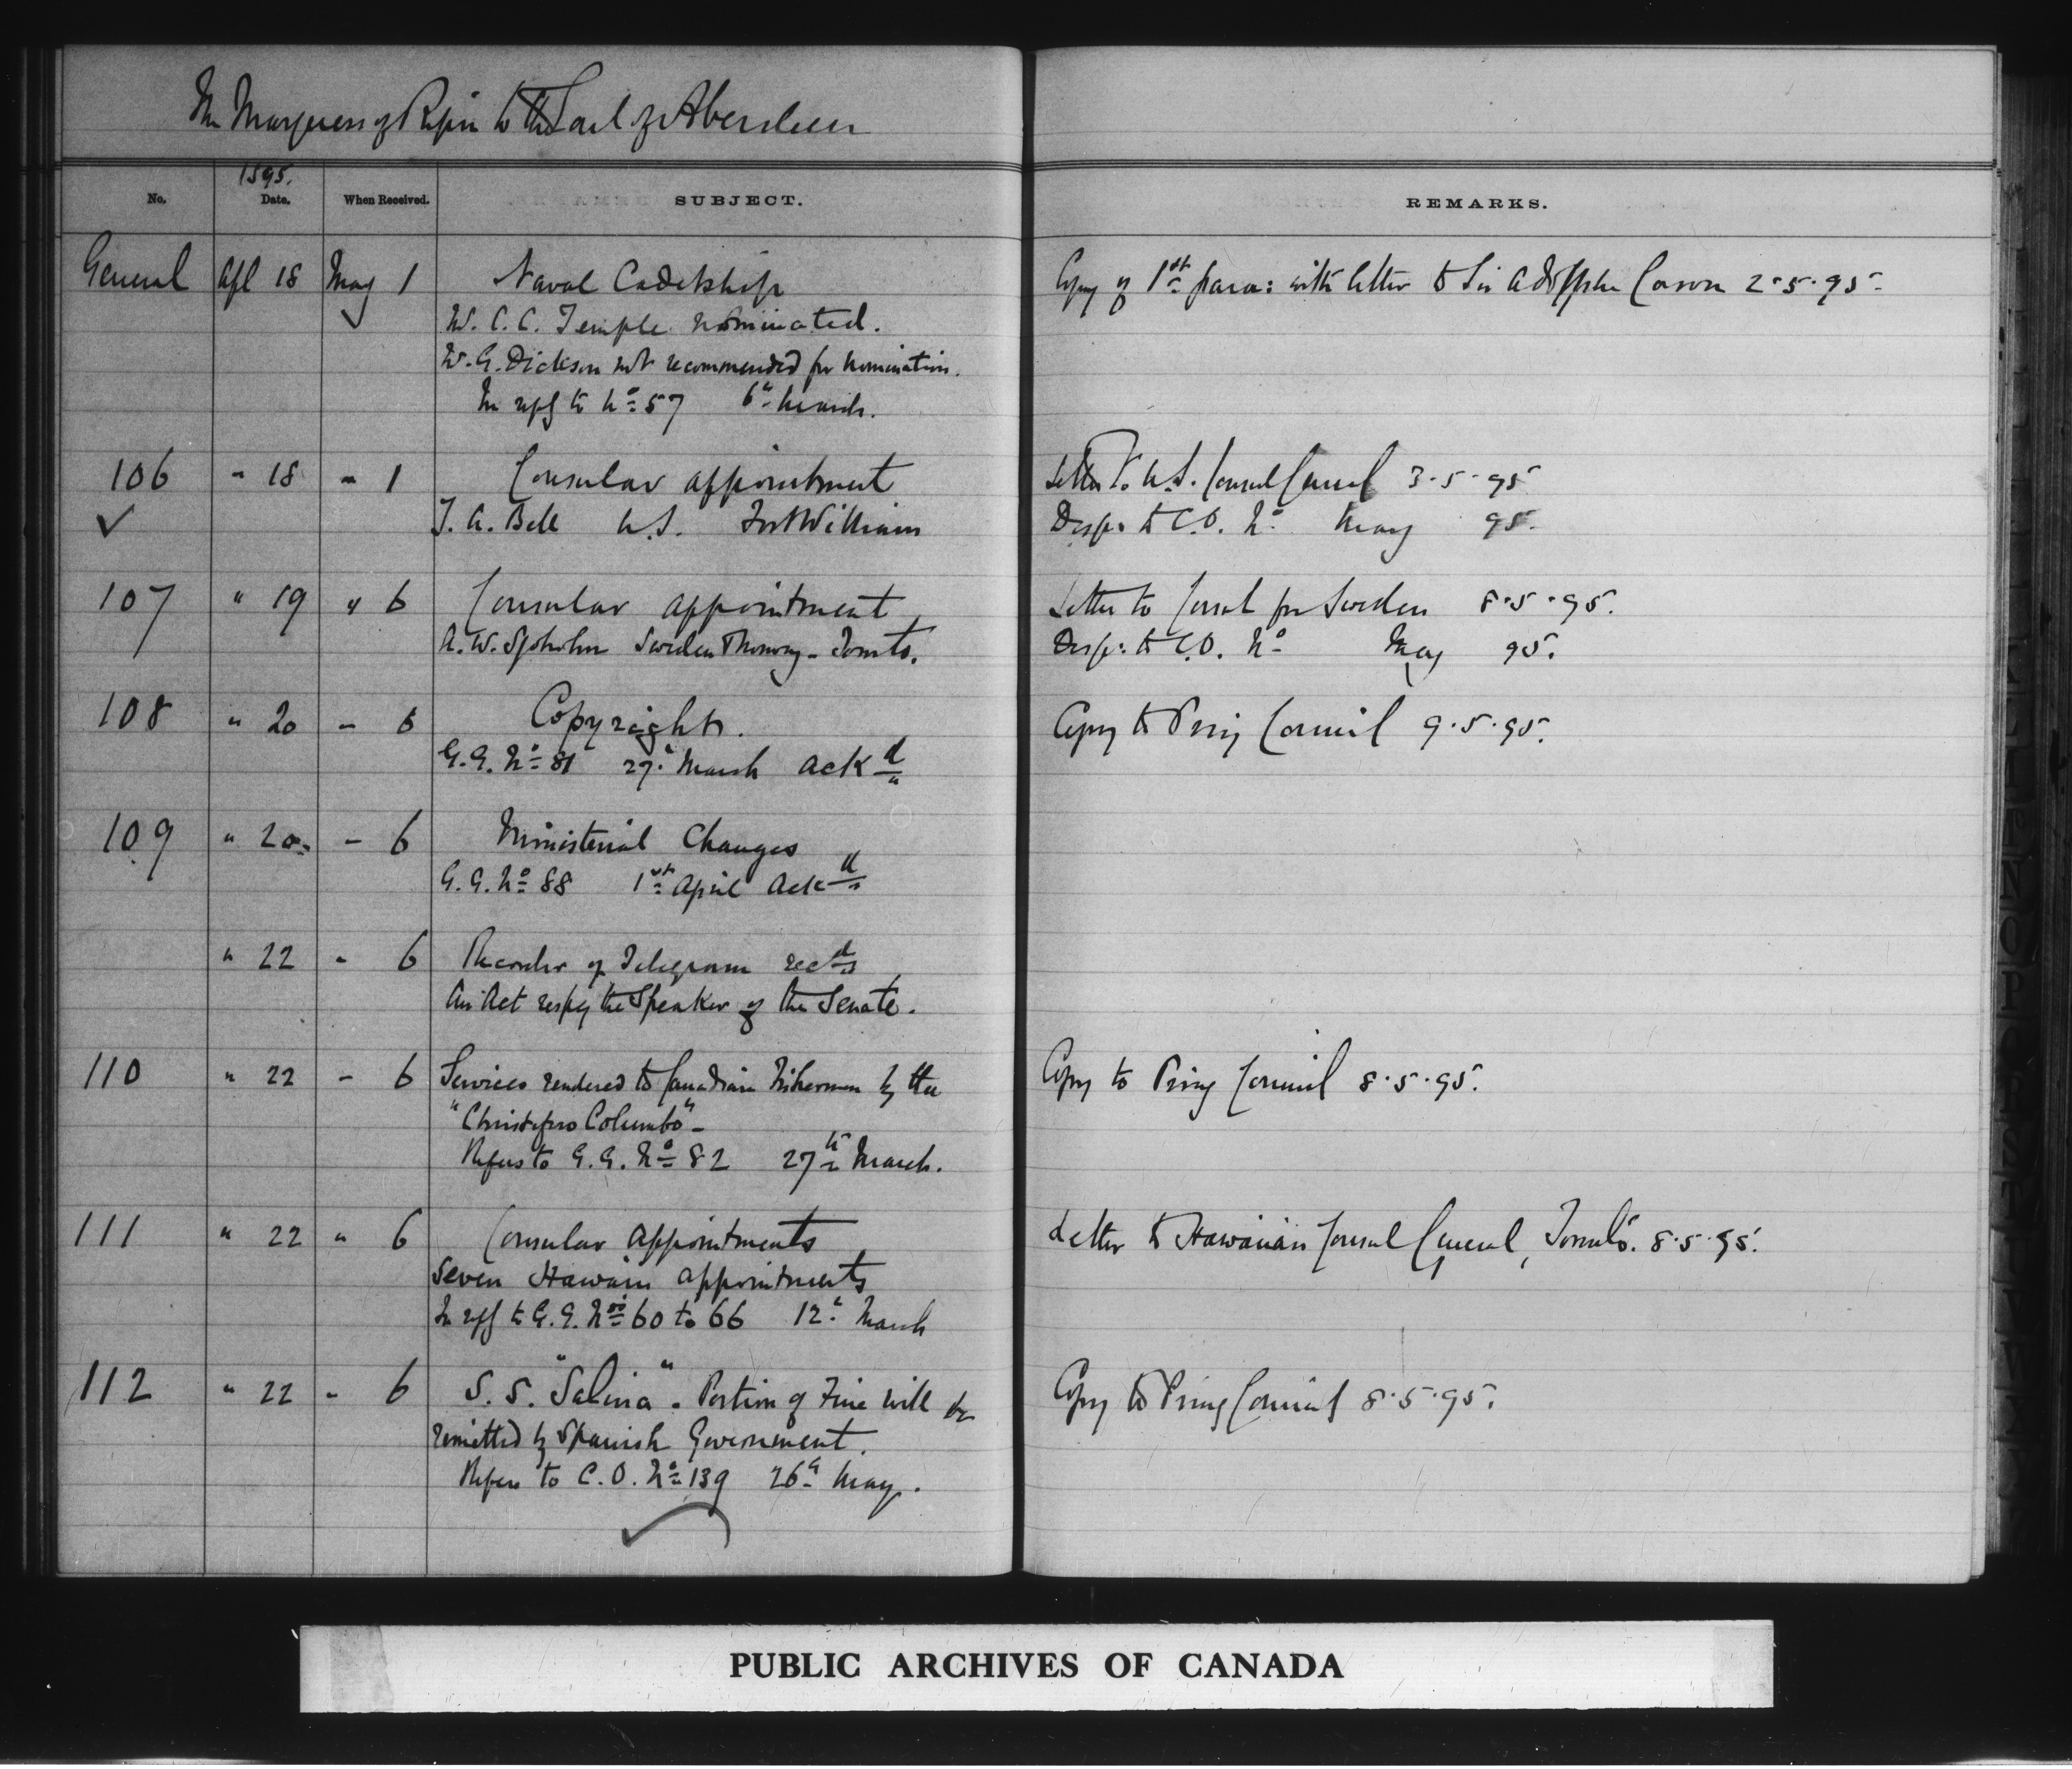 The Marquess of Ripon to the Earl of Aberdeen
1895.
No. Date. When Received. SUBJECT. REMARKS.
General Apl 18 May 1 Naval Cadetship Copy of 1st para: with letter to Sir Adolphe Caron 2·5·95.
W. C. C. Temple nominated.
W. G. Dickson not recommended for nomination.
In reply to No 57 6th March.
106 " 18 " 1 Consular appointment Letter to U.S. Consul General 3·5·95
✓ T. A. Bell U.S. Fort William Desp: to C.O. No May 95.
107 " 19 " 6 Consular appointment Letter to Consul for Sweden 8·5·95.
A. W. Sjoholm Sweden & Norway - Toronto. Desp: to C.O. No May 95.
108 " 20 " 6 Copyright. Copy to Privy Council 9·5·95.
G.G. No 81 27th March Ackd
109 " 20 " 6 Ministerial Changes
G.G. No 88 1st April Ackd
" 22 " 6 of Telegram recd
An Act respg the Speaker of the Senate.
110 " 22 " 6 Services rendered to Canadian Fishermen by the Copy to Privy Council 8·5·95.
"Christoforo Columbo" -
Refers to G.G. No 82 27th March.
111 " 22 " 6 Consular Appointments Letter to Hawaiian Consul General, Toronto. 8·5·95.
Seven Hawain appointments
In reply to G.G. Nos 60 to 66 12th March
112 " 22 " 6 S.S. "Salina". Portion of Fine will be Copy to Privy Council 8·5·95.
remitted by Spanish Government.
Refers to C.O. No 139 26th May.
PUBLIC ARCHIVES OF CANADA